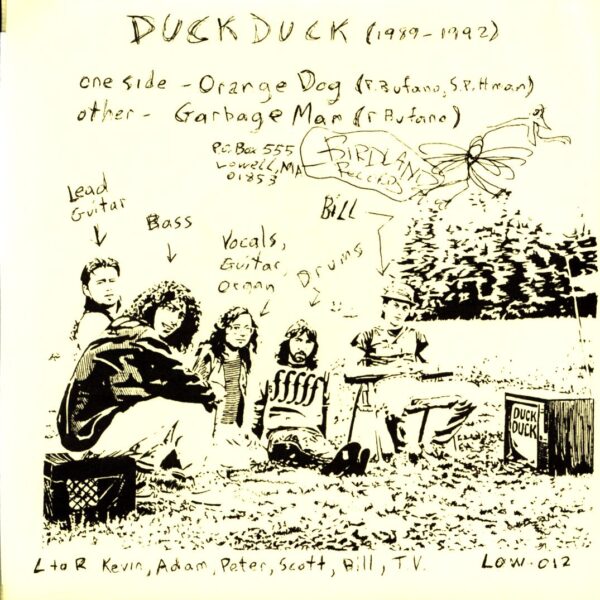 DUCKDUCK (1989-1992)
one side - Orange Dog (P. Bufano, S. Pittman)
other - Garbage Man (P. Bufano)
P.O. Box 555
Lowell, MA
01853
BIRDLAND
Records
Lead
Guitar
Bass
Vocals,
Guitar,
Organ
Drums
Bill
DUCK
DUCK
L to R Kevin, Adam, Peter, Scott, Bill, T.V.
LOW-012